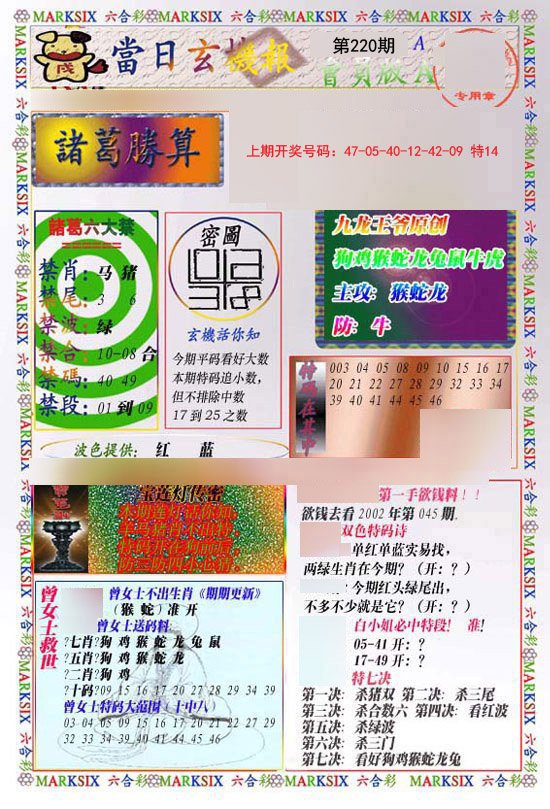 MARKSIX 六合彩 MARKSIX 六合彩 MARKSIX 六合彩 MARKSIX 六合彩
當日玄機報
第220期
A
會員版A
专用章
諸葛勝算
上期开奖号码：47-05-40-12-42-09 特14
諸葛六大禁
禁肖：马 猪
禁尾：3 6
禁波：绿
禁合：10-08 合
禁碼：40 49
禁段：01 到 09
密圖
玄機話你知
今期平码看好大数
本期特码追小数，
但不排除中数
17 到 25 之数
九龙王爷原创
狗鸡猴蛇龙兔鼠牛虎
主攻：猴蛇龙
防：牛
特码在其中
003 04 05 08 09 10 15 16 17
20 21 22 27 28 29 32 33 34
39 40 41 44 45 46
波色提供： 红 蓝
宝莲灯传密
第一手欲钱料！！
欲钱去看 2002 年第 045 期.
双色特码诗
单红单蓝实易找，
两绿生肖在今期？（开：？）
今期红头绿尾出，
不多不少就是它？（开：？）
白小姐必中特段！ 准！
05-41 开：？
17-49 开：？
特七决
第一决：杀猪双 第二决：杀三尾
第三决：杀合数六 第四决：看红波
第五决：杀绿波
第六决：杀三门
第七决：看好狗鸡猴蛇龙兔
曾女士救世
曾女士不出生肖《期期更新》
（猴 蛇）准 开
曾女士送码料：
?七肖?狗 鸡 猴 蛇 龙 兔 鼠
?五肖?狗 鸡 猴 蛇 龙
?二肖?狗 鸡
?十码?09 15 16 17 20 27 28 29 34 39
曾女士特码大范围（十中八）
03 04 05 09 15 16 17 20 21 22 27 29
32 33 34 39 40 41 44 45 46
MARKSIX 六合彩 MARKSIX 六合彩 MARKSIX 六合彩 MARKSIX 六合彩